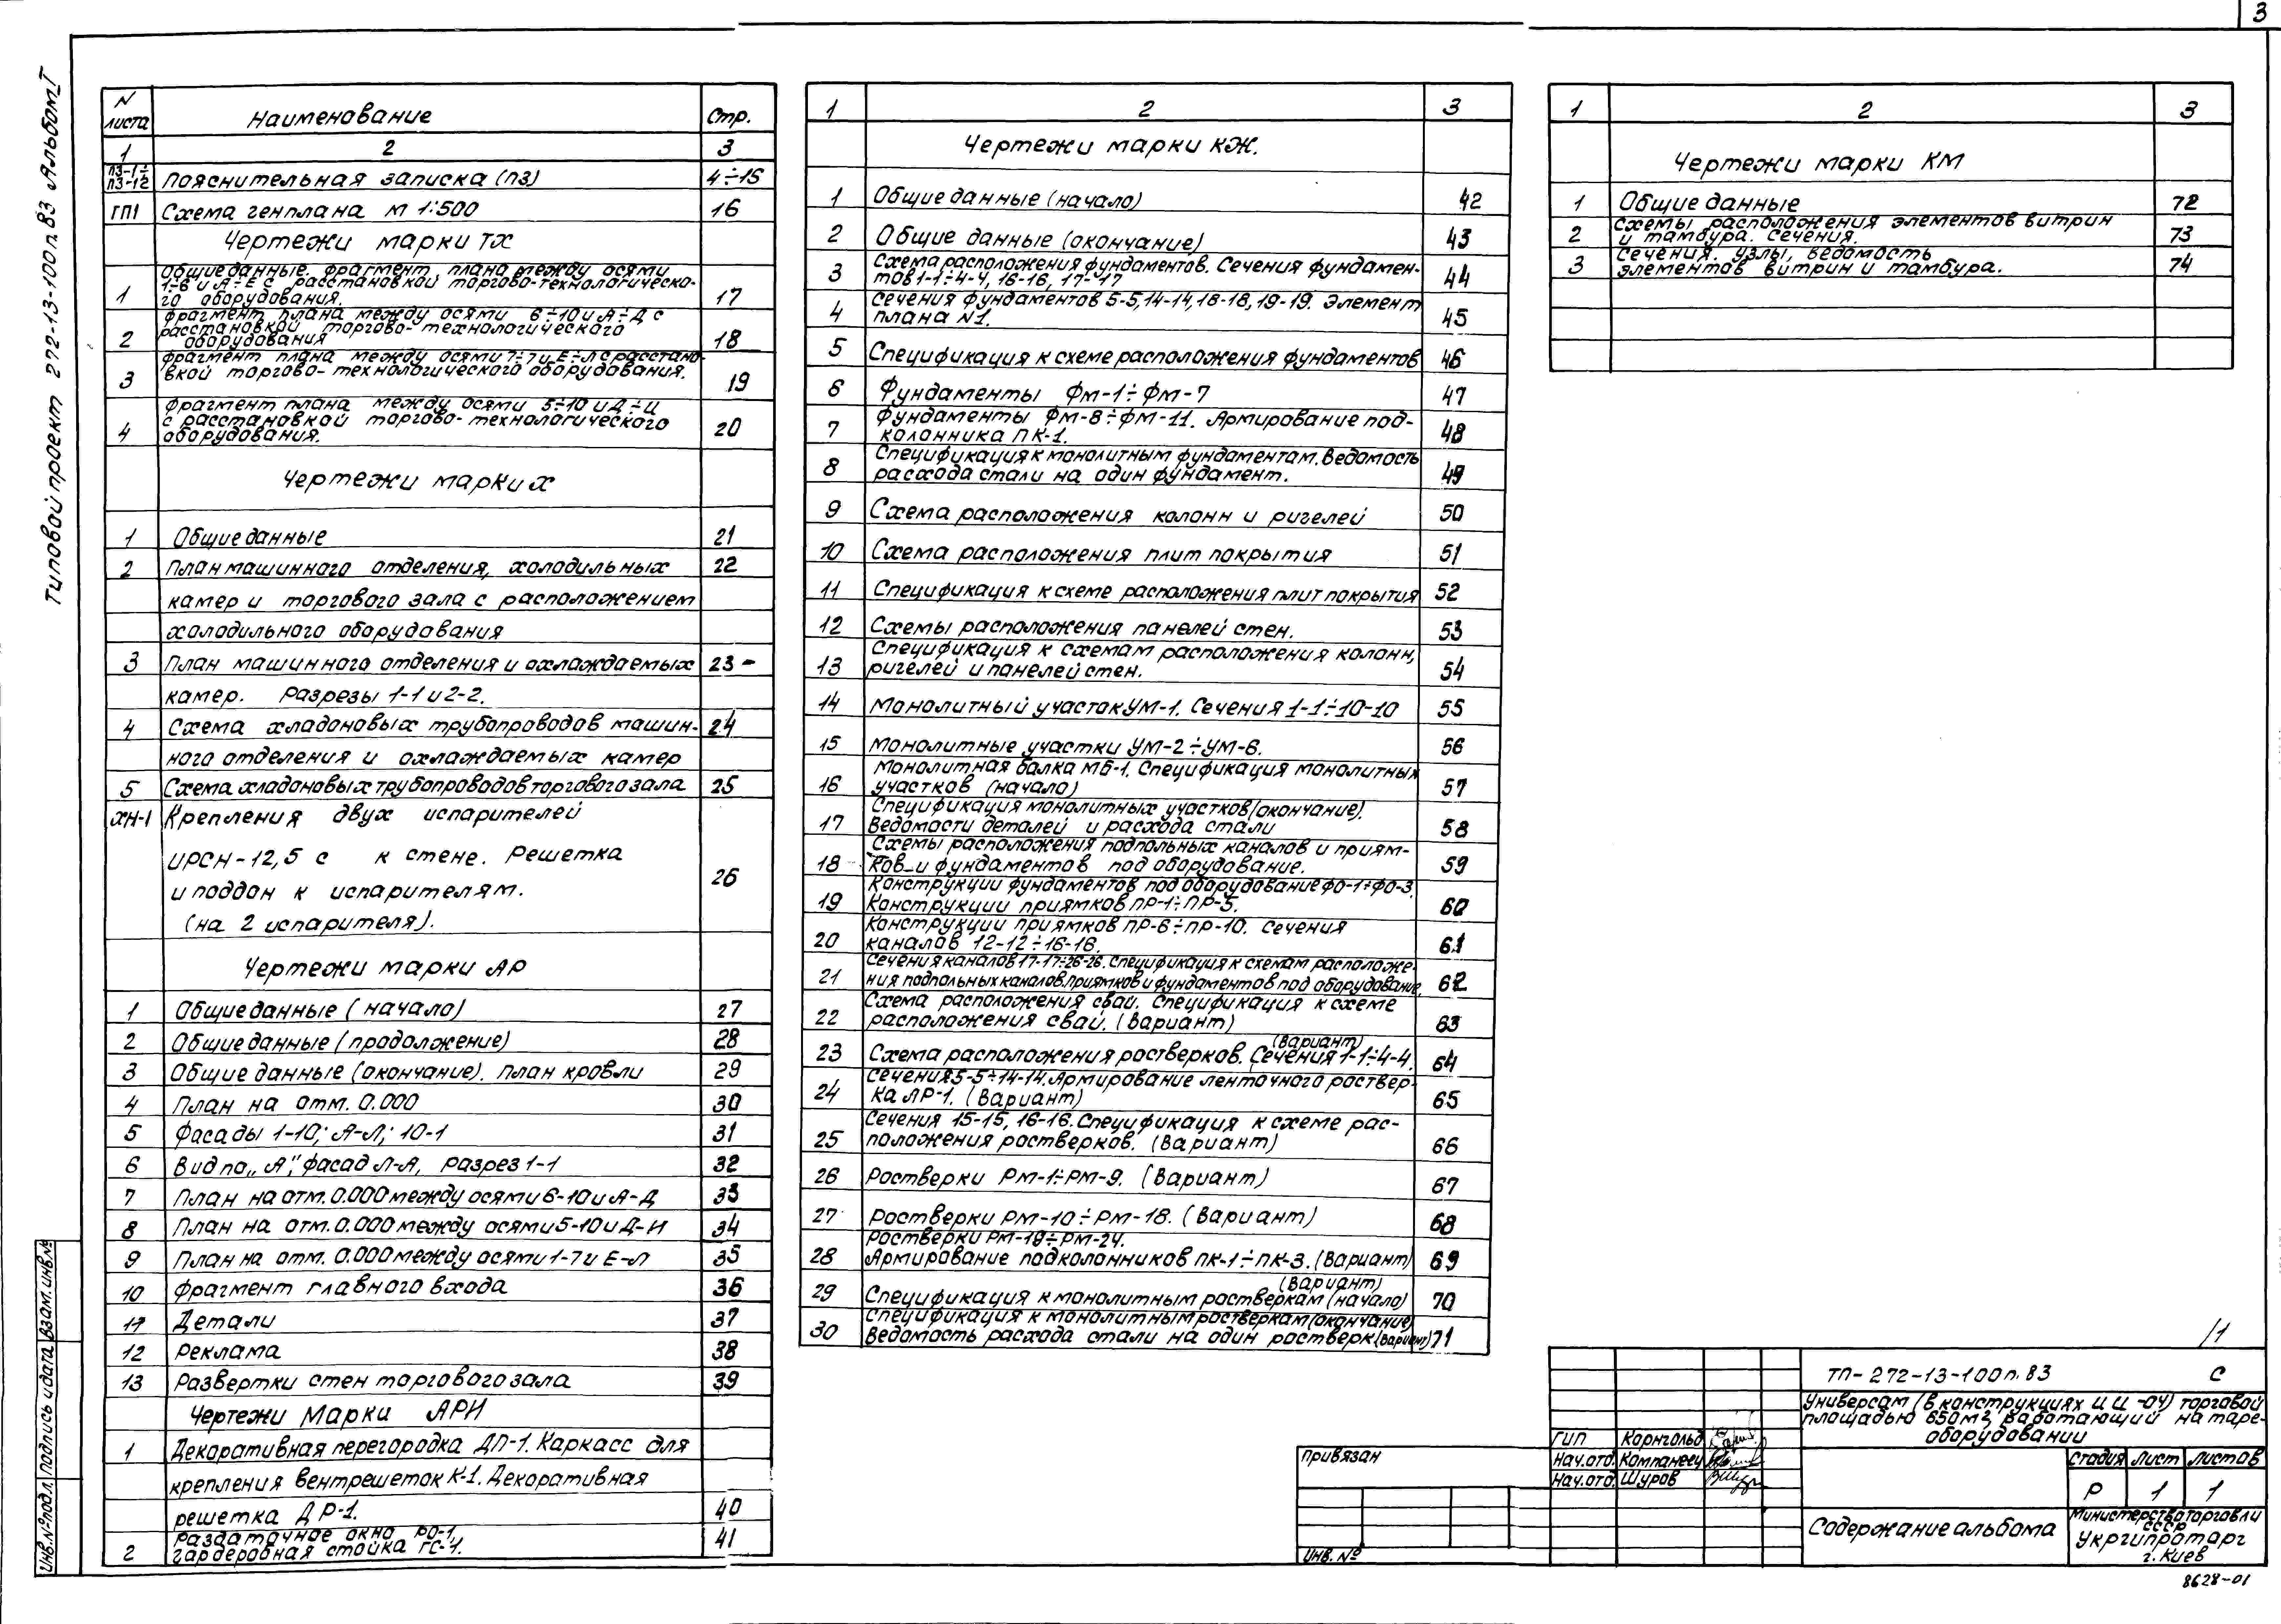 3
Типовой проект 272-13-100п.83 Альбом I
N листа Наименование Стр.
1 2 3
ПЗ-1÷ ПЗ-12 Пояснительная записка (ПЗ) 4÷15
ГП1 Схема генплана М 1:500 16
Чертежи марки ТХ
Общие данные. Фрагмент плана между осями
1-6 и А÷Е с расстановкой торгово-технологическо-
1 го оборудования. 17
Фрагмент плана между осями 6÷10 и А÷Д с
расстановкой торгово-технологического
2 оборудования 18
Фрагмент плана между осями 1÷7 и Е÷Л с расстано-
3 вкой торгово-технологического оборудования. 19
Фрагмент плана между осями 5÷10 и Д÷И
с расстановкой торгово-технологического
4 оборудования. 20
Чертежи марки Х
1 Общие данные 21
2 План машинного отделения, холодильных 22
камер и торгового зала с расположением
холодильного оборудования
3 План машинного отделения и охлаждаемых 23-
камер. Разрезы 1-1 и 2-2.
4 Схема хладоновых трубопроводов машин- 24
ного отделения и охлаждаемых камер
5 Схема хладоновых трубопроводов торгового зала 25
ХН-1 Крепления двух испарителей
ИРСН-12,5 с к стене. Решетка
и поддон к испарителям. 26
(на 2 испарителя).
Чертежи марки АР
1 Общие данные (начало) 27
2 Общие данные (продолжение) 28
3 Общие данные (окончание). План кровли 29
4 План на отм. 0.000 30
5 Фасады 1-10; А-Л; 10-1 31
6 Вид по „А", фасад Л-А, разрез 1-1 32
7 План на отм. 0.000 между осями 6-10 и А-Д 33
8 План на отм. 0.000 между осями 5-10 и Д-И 34
9 План на отм. 0.000 между осями 1-7 и Е-Л 35
10 Фрагмент главного входа 36
11 Детали 37
12 Реклама 38
13 Развертки стен торгового зала 39
Чертежи Марки АРИ
1 Декоративная перегородка ДП-1. Каркасс для
крепления вентрешеток К-1. Декоративная
решетка ДР-1. 40
Раздаточное окно РО-1,
2 гардеробная стойка ГС-1. 41
1 2 3
Чертежи марки КЖ.
1 Общие данные (начало) 42
2 Общие данные (окончание) 43
Схема расположения фундаментов. Сечения фундамен-
3 тов 1-1÷4-4, 16-16, 17-17 44
Сечения фундаментов 5-5, 14-14, 18-18, 19-19. Элемент
4 плана N1. 45
5 Спецификация к схеме расположения фундаментов 46
6 Фундаменты Фм-1÷Фм-7 47
Фундаменты Фм-8÷Фм-11. Армирование под-
7 колонника ПК-1. 48
Спецификация к монолитным фундаментам. Ведомость
8 расхода стали на один фундамент. 49
9 Схема расположения колонн и ригелей 50
10 Схема расположения плит покрытия 51
11 Спецификация к схеме расположения плит покрытия 52
12 Схемы расположения панелей стен. 53
Спецификация к схемам расположения колонн,
13 ригелей и панелей стен. 54
14 Монолитный участок УМ-1. Сечения 1-1÷10-10 55
15 Монолитные участки УМ-2÷УМ-6. 56
Монолитная балка МБ-1. Спецификация монолитных
16 участков (начало) 57
Спецификация монолитных участков (окончание).
17 Ведомости деталей и расхода стали 58
Схемы расположения подпольных каналов и приям-
18 ков и фундаментов под оборудование. 59
Конструкции фундаментов под оборудование ФО-1÷ФО-3.
19 Конструкции приямков ПР-1÷ПР-5. 60
Конструкции приямков ПР-6÷ПР-10. Сечения
20 каналов 12-12÷16-16. 61
Сечения каналов 17-17÷26-26. Спецификация к схемам расположе-
21 ния подпольных каналов, приямков и фундаментов под оборудование. 62
Схема расположения свай. Спецификация к схеме
22 расположения свай. (Вариант) 63
(Вариант)
23 Схема расположения ростверков. Сечения 1-1÷4-4. 64
Сечения 5-5÷14-14. Армирование ленточного роствер-
24 ка ЛР-1. (Вариант) 65
Сечения 15-15, 16-16. Спецификация к схеме рас-
25 положения ростверков. (Вариант) 66
26 Ростверки РМ-1÷РМ-9. (Вариант) 67
27 Ростверки РМ-10÷РМ-18. (Вариант) 68
Ростверки РМ-19÷РМ-24.
28 Армирование подколонников ПК-1÷ПК-3. (Вариант) 69
(Вариант)
29 Спецификация к монолитным ростверкам (начало) 70
Спецификация к монолитным ростверкам (окончание)
30 Ведомость расхода стали на один ростверк (Вариант) 71
1 2 3
Чертежи марки КМ
1 Общие данные 72
Схемы расположения элементов витрин
2 и тамбура. Сечения. 73
Сечения. Узлы, ведомость
3 элементов витрин и тамбура. 74
/1
ТП-272-13-100п.83 С
Универсам (в конструкциях ИИ-04) торговой
площадью 650м², работающий на таре-
оборудовании
ГИП Корнгольд
Нач.отд. Компанеец
Нач.отд. Шуров
Стадия Лист Листов
Р 1 1
Содержание альбома
Министерство торговли
СССР
Укргипроторг
г. Киев
Привязан
Инв. №
8628-01
Инв.№подл. Подпись и дата Взам.инв.№